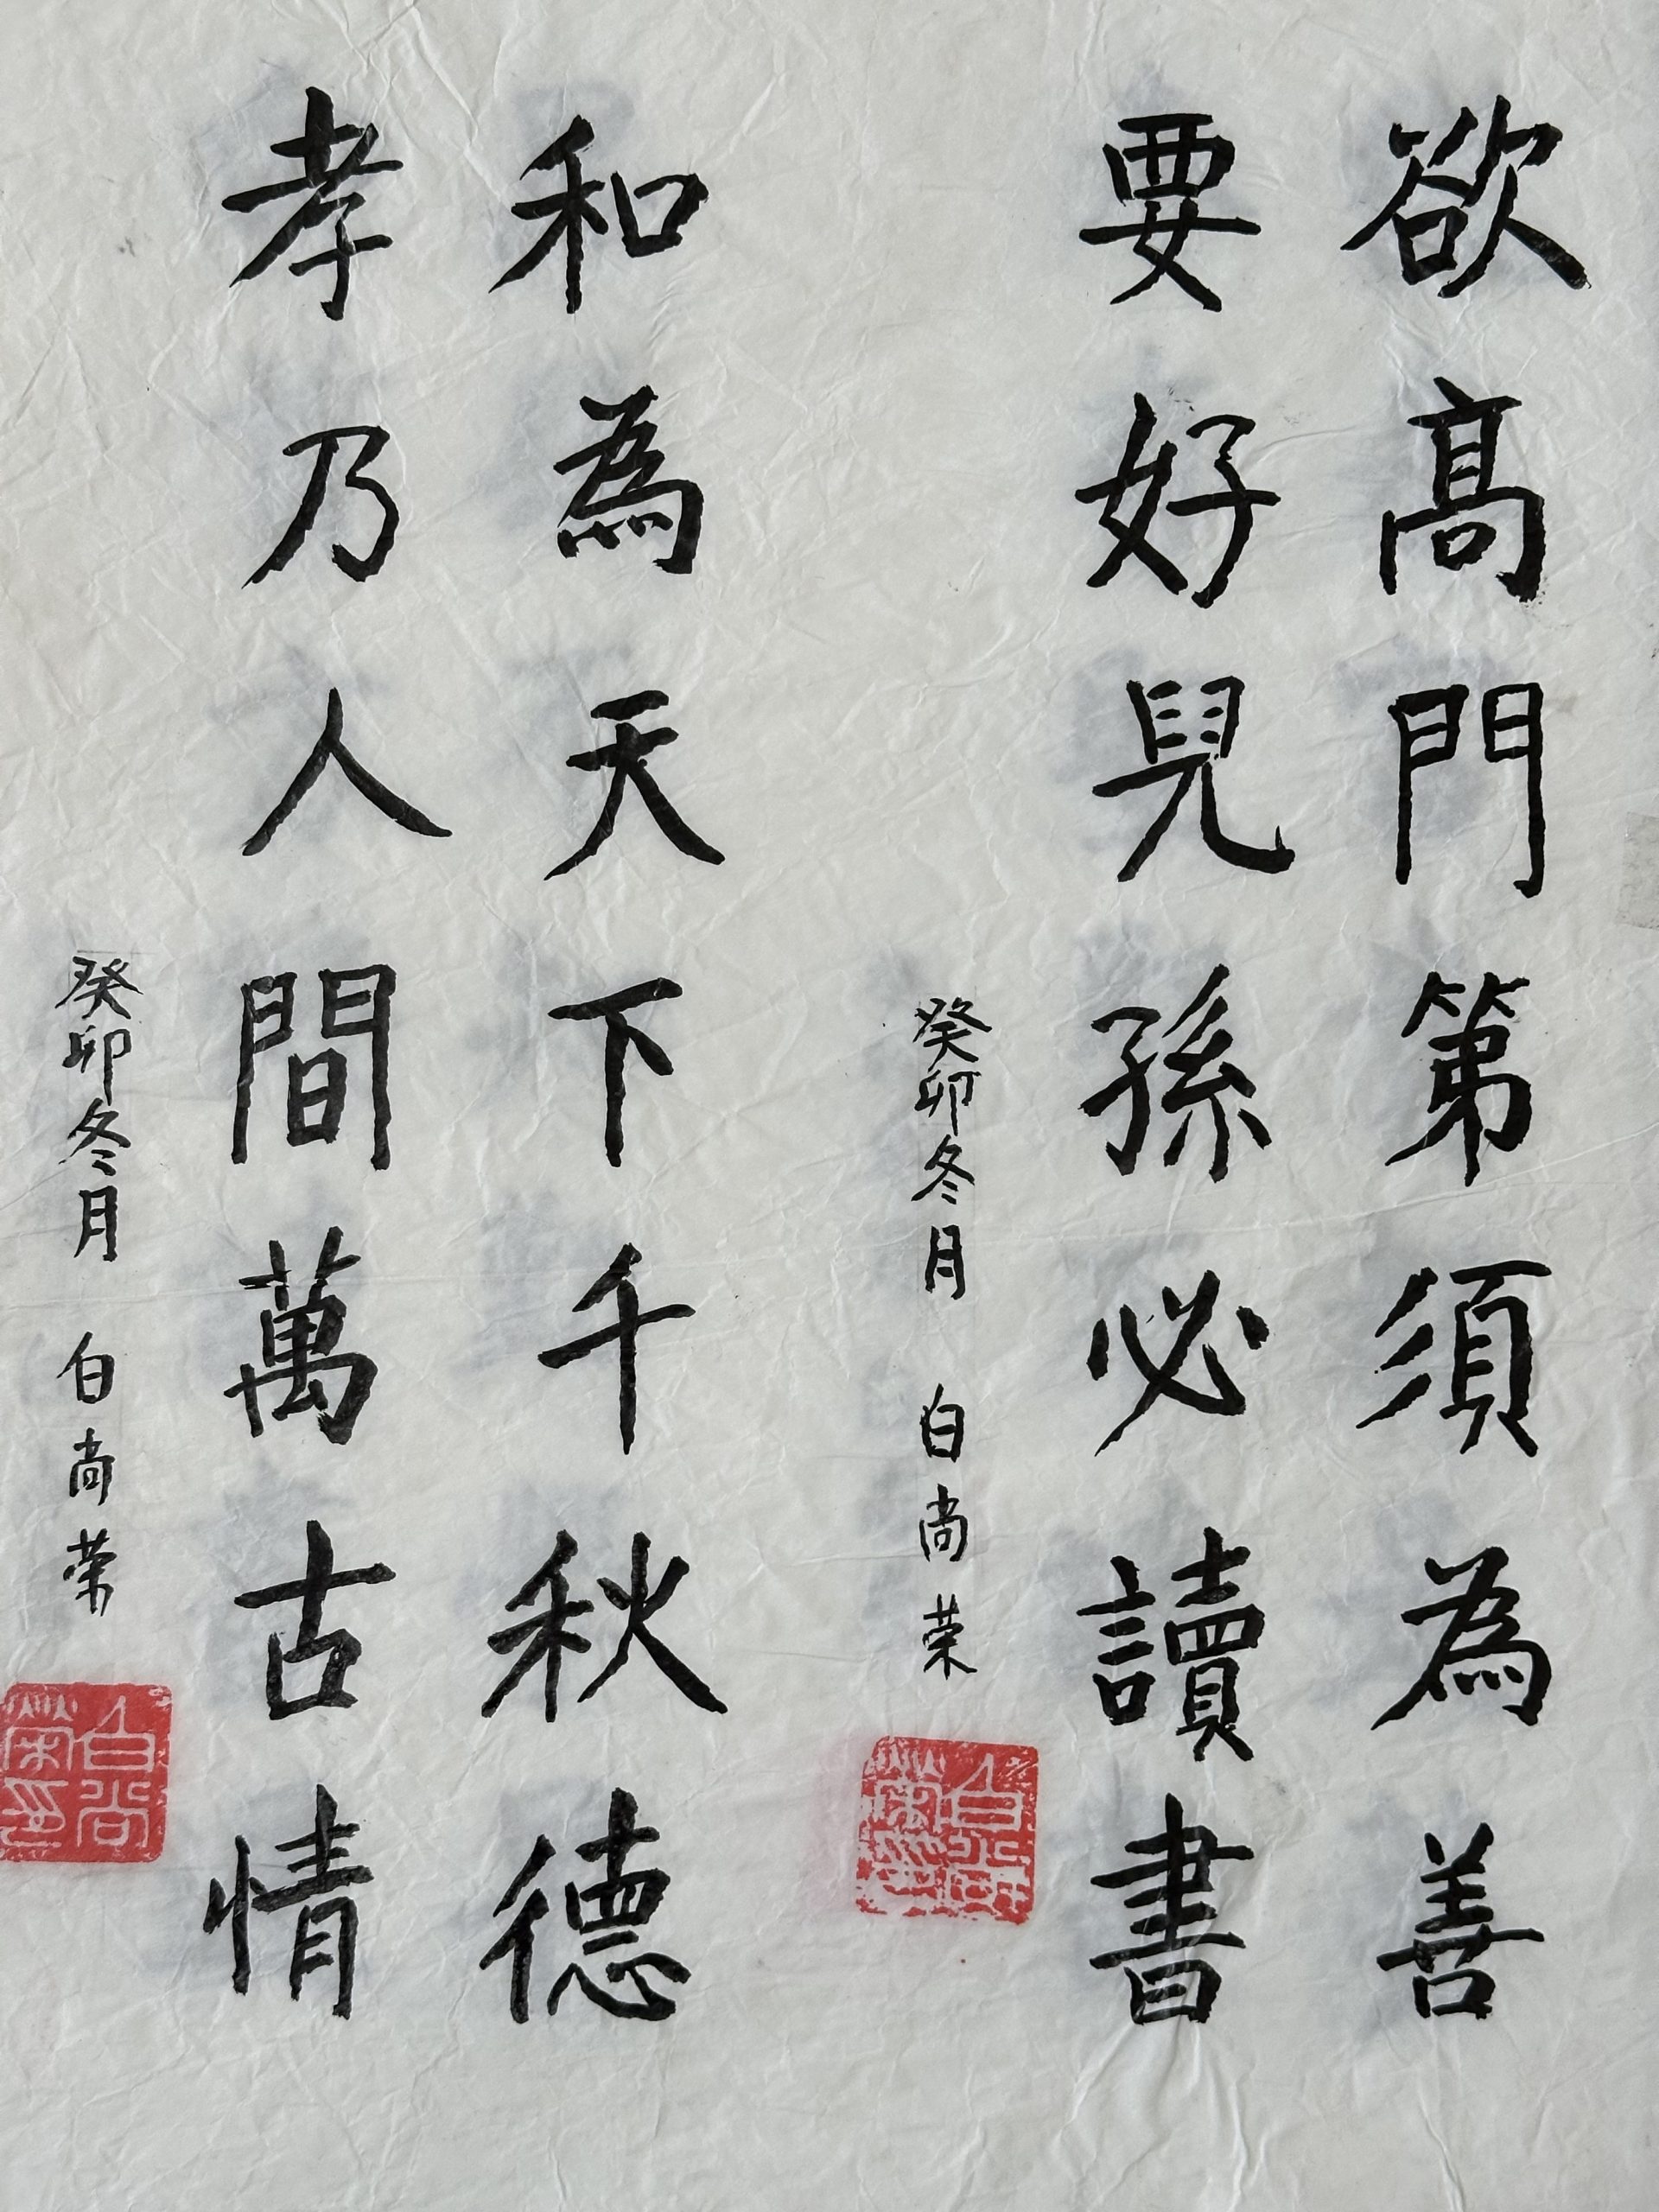 欲高門第須為善
要好兒孫必讀書
癸卯冬月 白尚荣
白尚榮印
和為天下千秋德
孝乃人間萬古情
癸卯冬月 白尚荣
白尚榮印